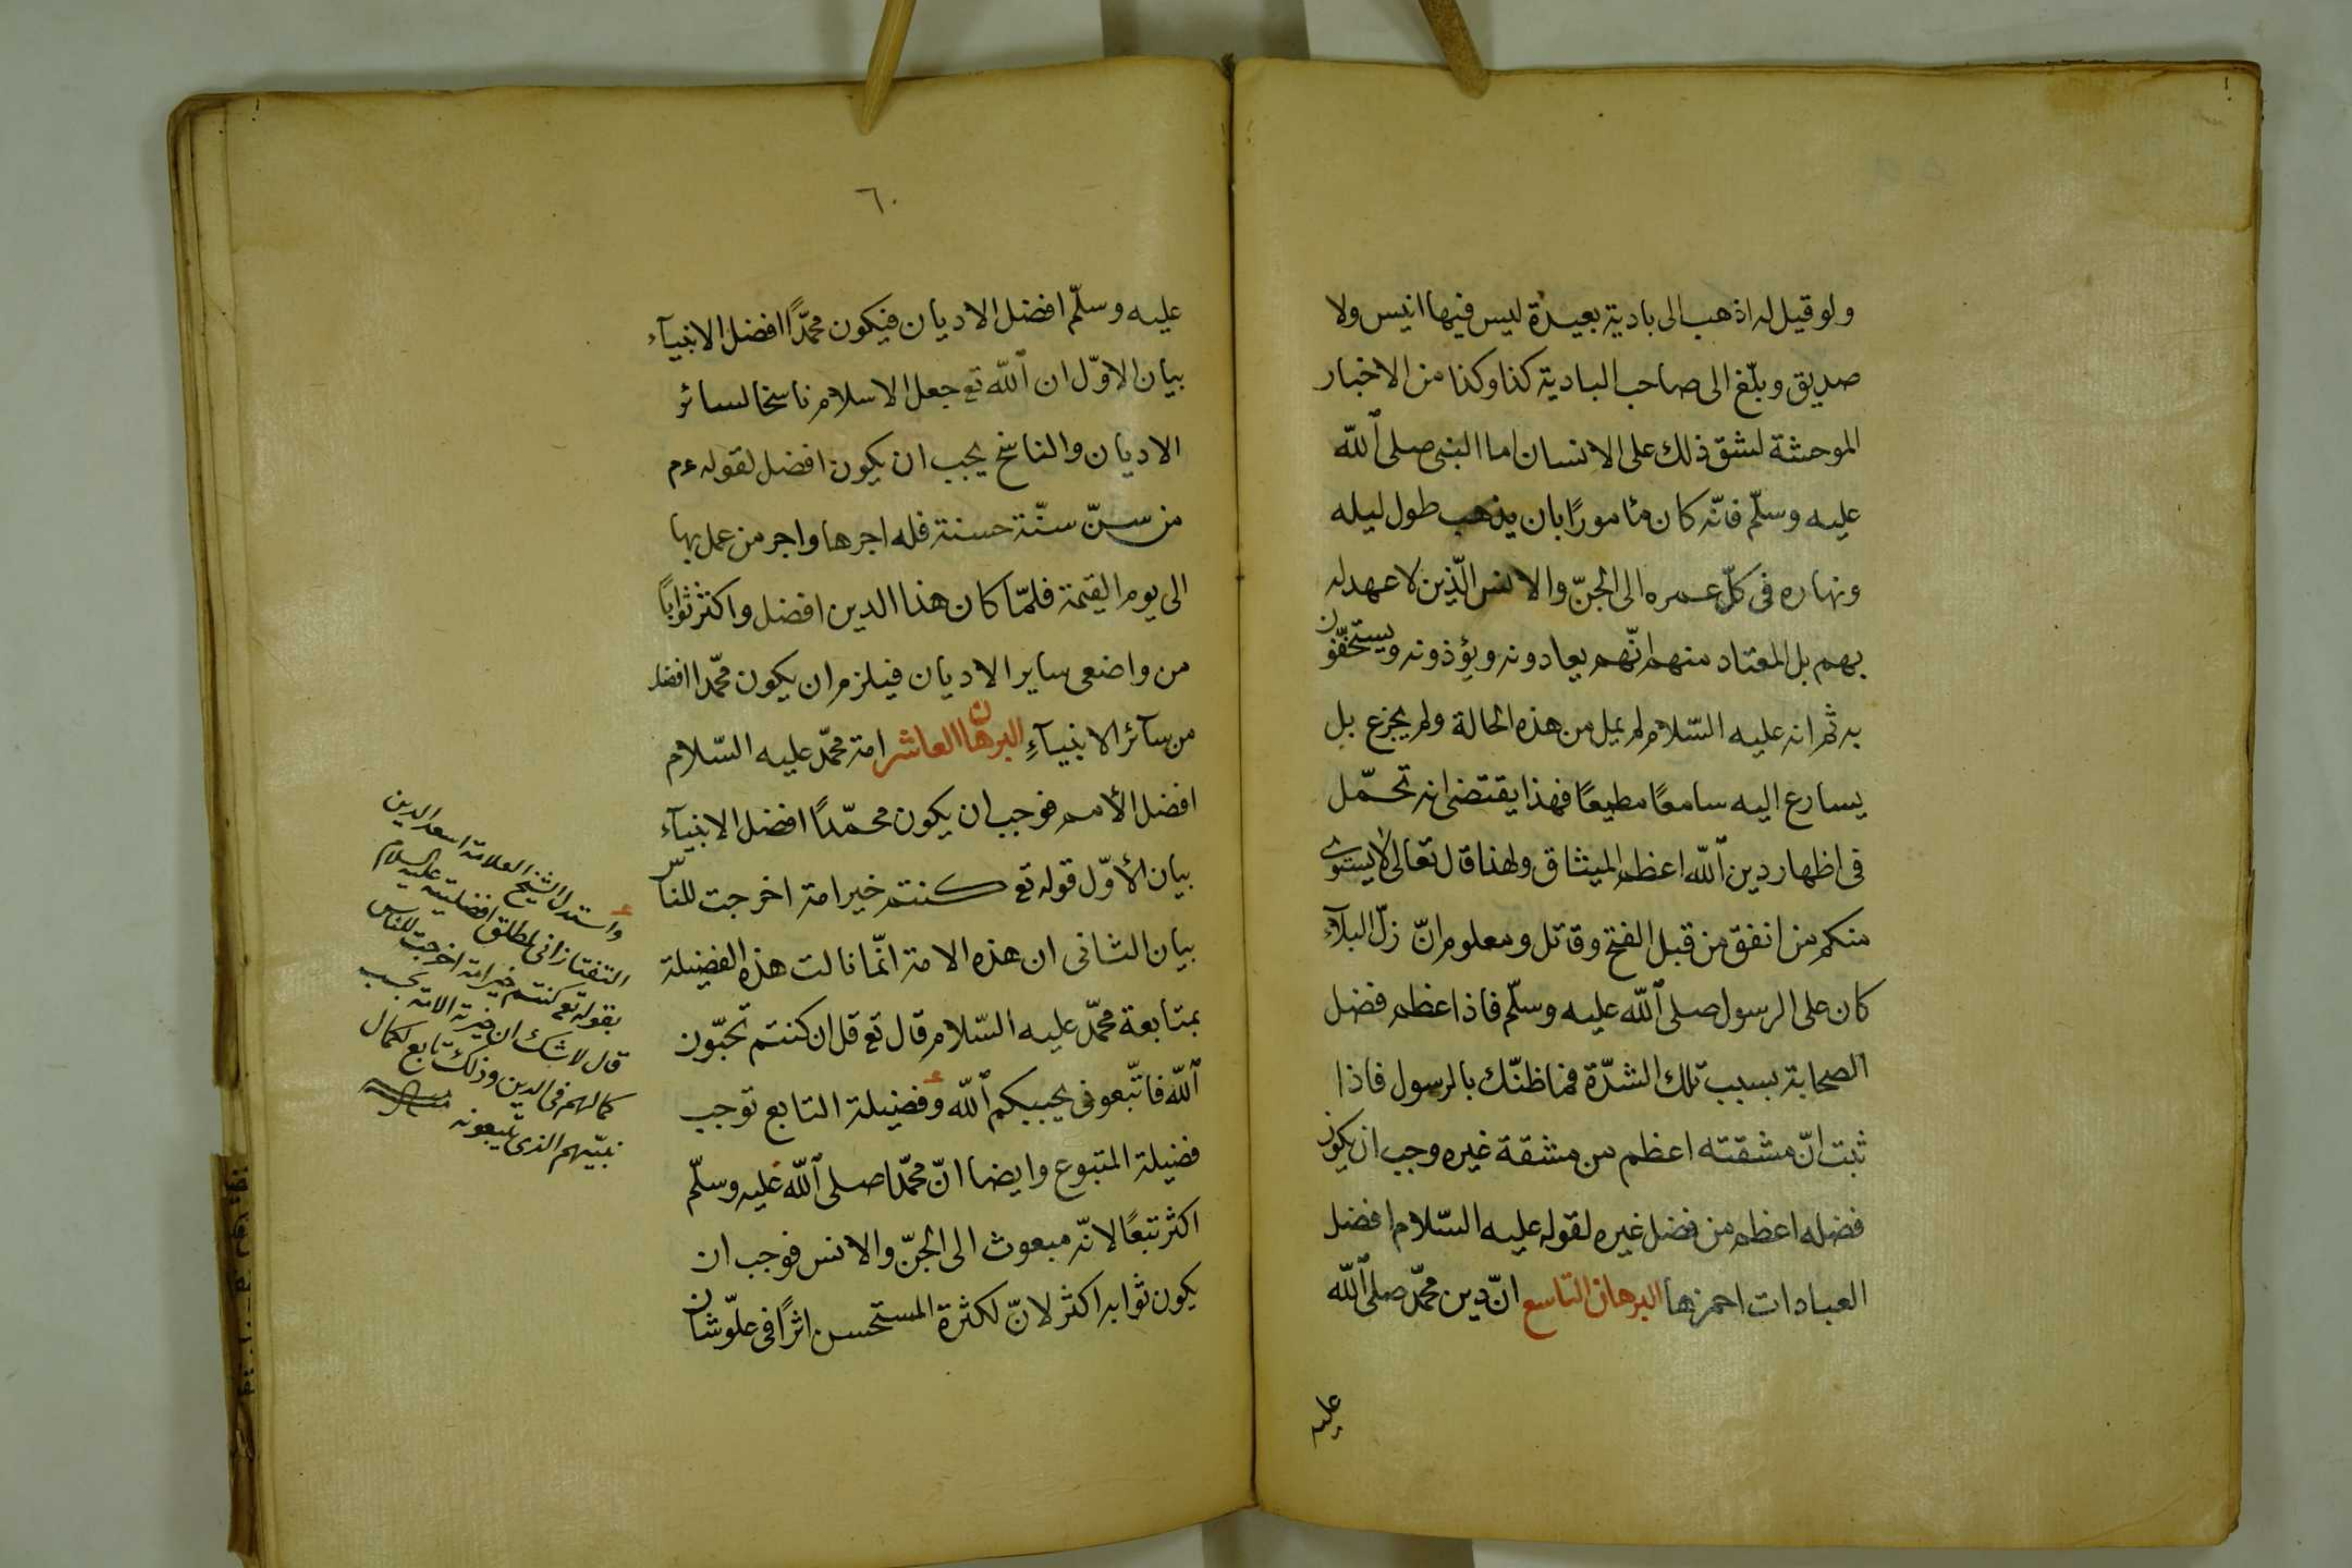 ولو قيل له اذهب الى بادية بعيدة ليس فيها انيس ولا
صديق وبلّغ الى صاحب البادية كذا وكذا من الاخبار
الموحشة لشق ذلك على الانسان اما النبى صلى الله
عليه وسلّم فانّه كان مأمورًا بان يذهب طول ليله
ونهاره فى كلّ عمره الى الجنّ والانس الّذين لا عهد له
بهم بل المعتاد منهم انّهم يعادونه ويؤذونه ويستخفّون
به ثم انه عليه السّلام لم يمل من هذه الحالة ولم يجزع بل
يسارع اليه سامعًا مطيعًا فهذا يقتضى انه تحمّل
فى اظهار دين الله اعظم الميثاق ولهذا قال تعالى لا يستوى
منكم من انفق من قبل الفتح وقاتل ومعلوم انّ زلّ البلآء
كان على الرسول صلى الله عليه وسلّم فاذا اعظم فضل
الصحابة بسبب تلك الشدّة فما ظنّك بالرسول فاذا
ثبت انّ مشقته اعظم من مشقة غيره وجب ان يكون
فضله اعظم من فضل غيره لقوله عليه السّلام افضل
العبادات احمزها البرهان التاسع انّ دين محمّد صلى الله
عليه
٦٠
عليه وسلّم افضل الاديان فيكون محمّدًا افضل الانبيآء
بيان الاوّل ان الله تع جعل الاسلام ناسخا لسائر
الاديان والناسخ يجب ان يكون افضل لقوله عم
من سنّ سنّة حسنة فله اجرها واجر من عمل بها
الى يوم القيمة فلمّا كان هذا الدين افضل واكثر ثوابًا
من واضعى ساير الاديان فيلزم ان يكون محمّدا افضل
من سآئر الانبيآءِ البرهان العاشر امة محمّد عليه السّلام
افضل الأمم فوجب ان يكون محمّدًا افضل الانبيآء
بيان الأوّل قوله تع كنتم خير امة اخرجت للناس
بيان الثانى ان هذه الامة انّما نالت هذه الفضيلة
بمتابعة محمّد عليه السّلام قال تع قل ان كنتم تحبّون
الله فاتّبعونى يحببكم الله وفضيلة التابع توجب
فضيلة المتبوع وايضا انّ محمّدا صلى الله عليه وسلّم
اكثر تبعًا لانّه مبعوث الى الجنّ والانس فوجب ان
يكون ثوابه اكثر لانّ لكثرة المستحسن اثرًا فى علوّ شان
واستدل الشيخ العلامة اسعد الدين
التفتازانى لمطلق افضليته عليه السلام
بقوله تع كنتم خير امة اخرجت للناس
قال لا شك ان خيرية الامة بحسب
كمالهم فى الدين وذلك تابع لكمال
نبيّهم الذى يتبعونه